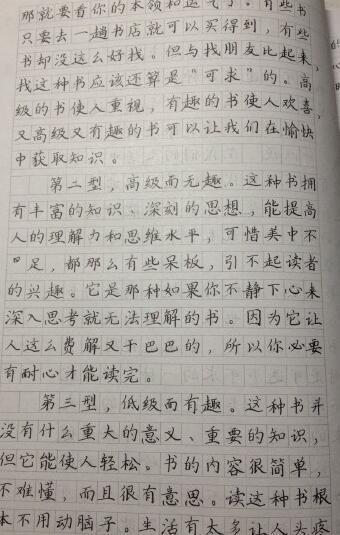 那就要看你的本领和运气了。有些书
只要去一趟书店就可以买得到，有些
书却没这么好找。但与找朋友比起来，
找这种书应该还算是“可求”的。高
级的书使人重视，有趣的书使人欢喜，
又高级又有趣的书可以让我们在愉快
中获取知识。
第二型，高级而无趣。这种书拥
有丰富的知识、深刻的思想，能提高
人的理解力和思维水平，可惜美中不
足，都那么有些呆板，引不起读者
的兴趣。它是那种如果你不静下心来
深入思考就无法理解的书。因为它让
人这么费解又干巴巴的，所以你必要
有耐心才能读完。
第三型，低级而有趣。这种书并
没有什么重大的意义、重要的知识，
但它能使人轻松。书的内容很简单，
不难懂，而且很有意思。读这种书根
本不用动脑子。生活有太多让人头疼